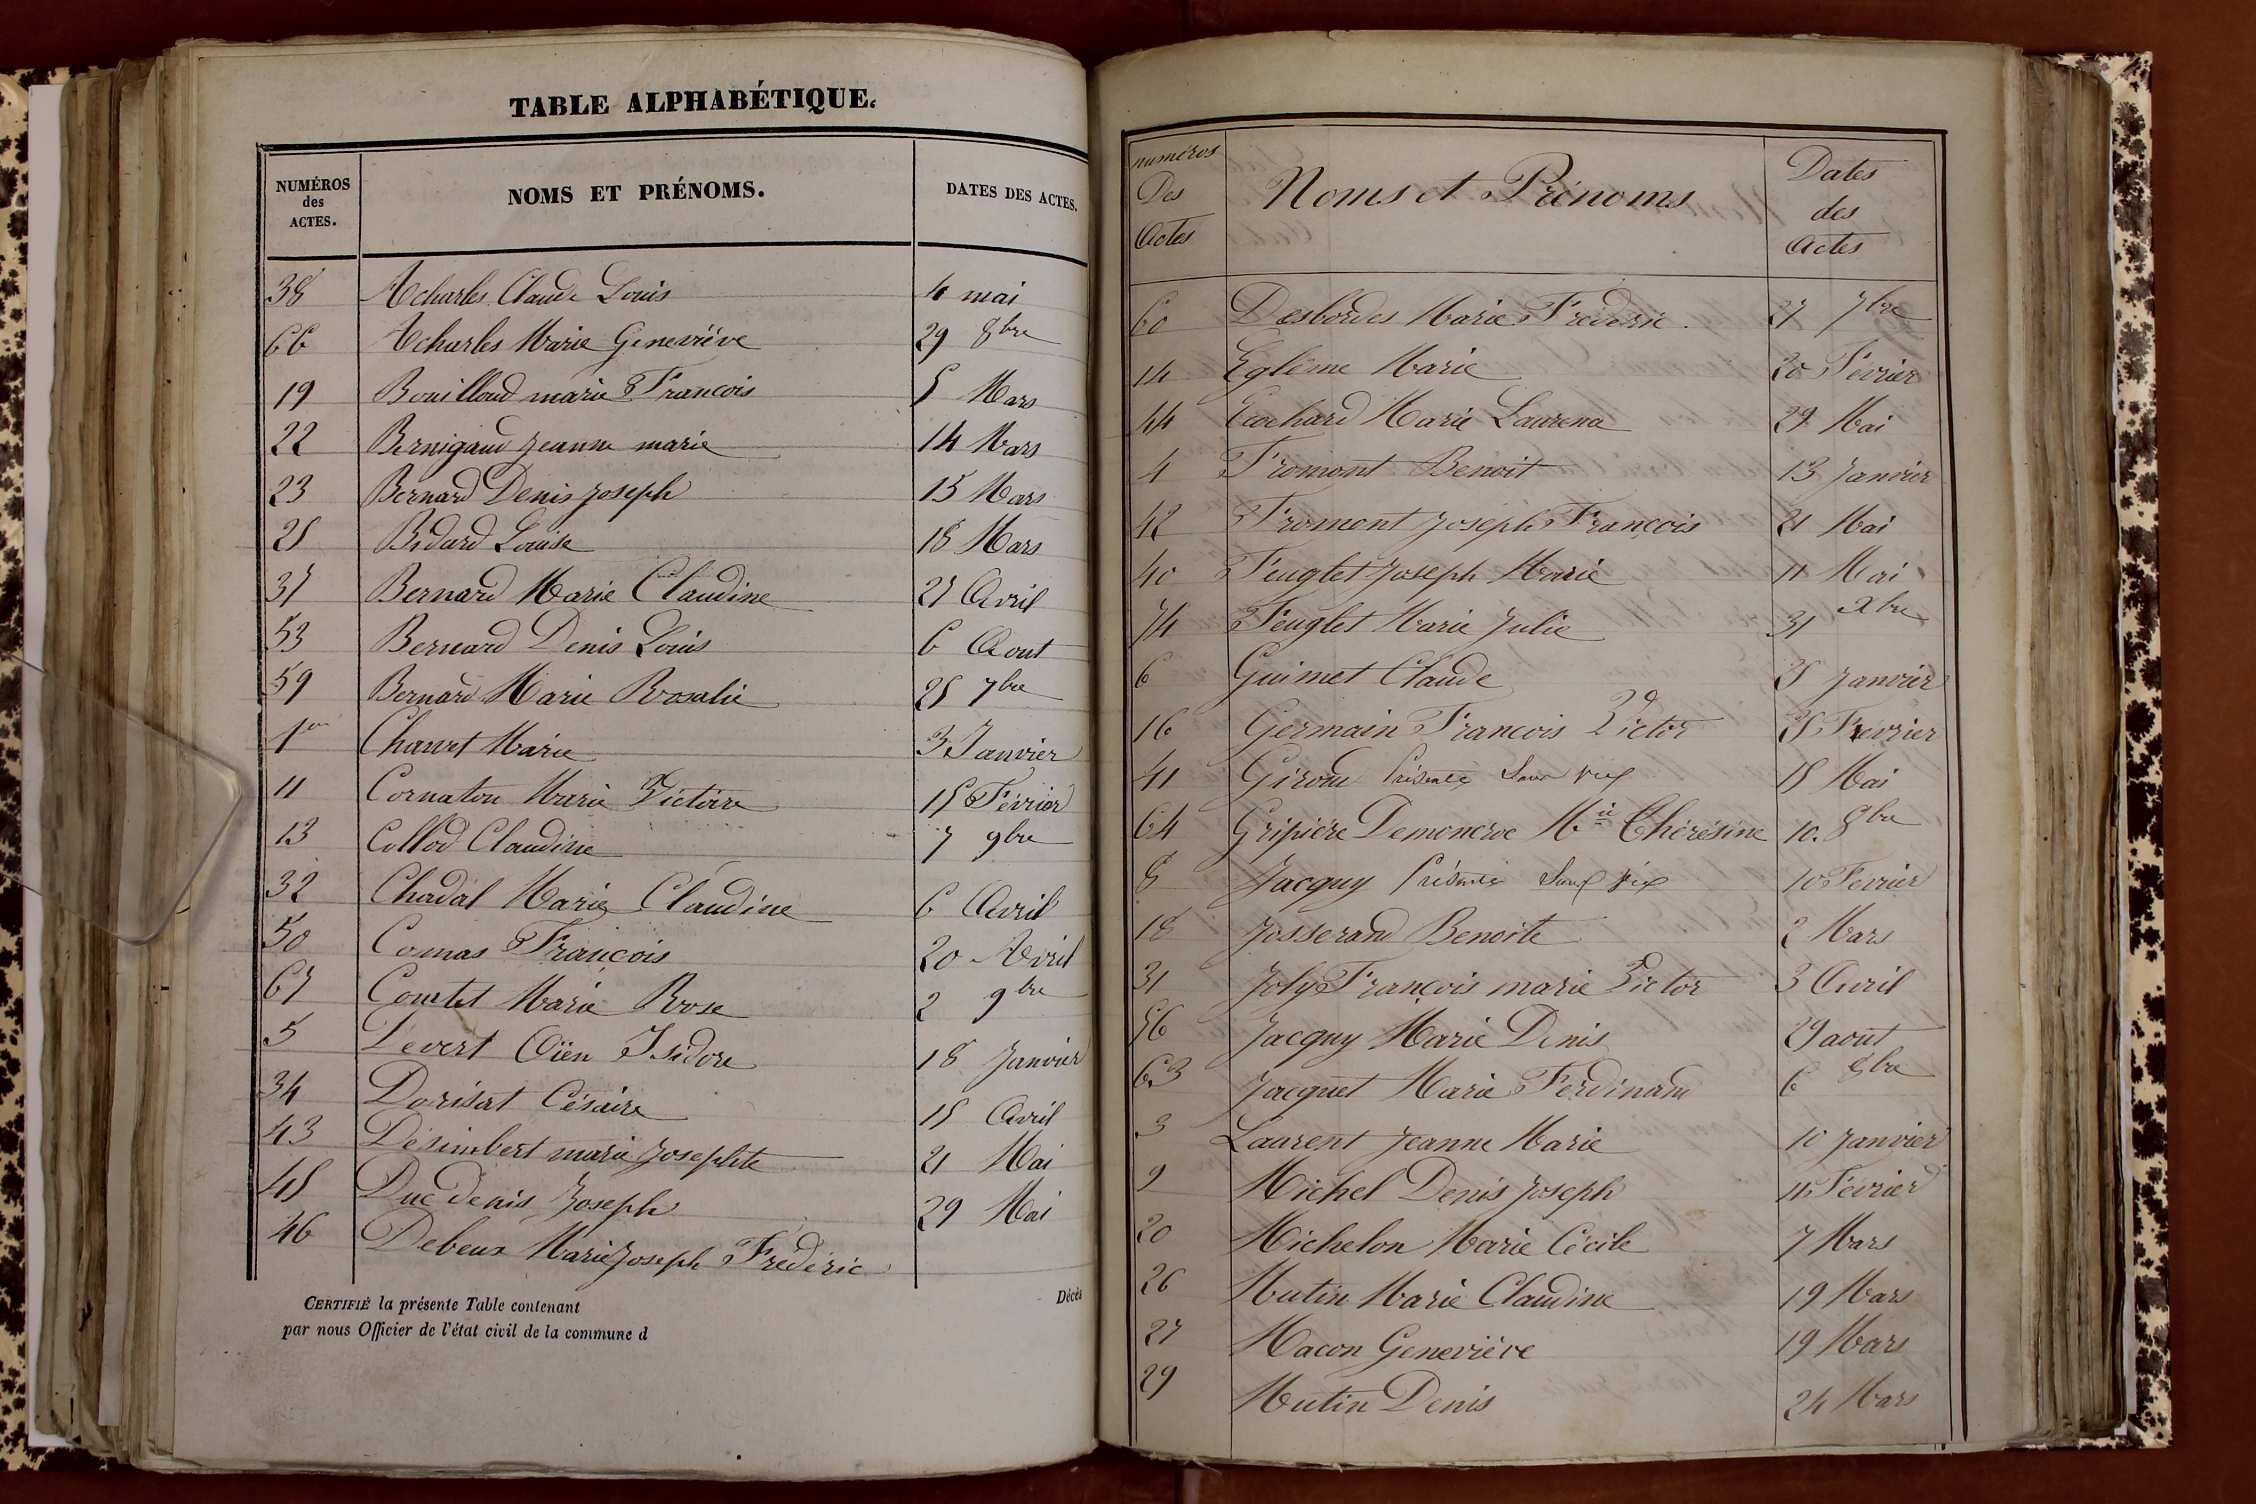 TABLE ALPHABÉTIQUE.
NUMÉROS des ACTES. NOMS ET PRÉNOMS. DATES DES ACTES.
38 Acharles Claude Louis 4 mai
66 Acharles Marie Geneviève 29 8bre
19 Bouilloud marie François 5 Mars
22 Bernigaud Jeanne marie 14 Mars
23 Bernard Denis Joseph 15 Mars
25 Bidard Louise 18 Mars
37 Bernard Marie Claudine 27 Avril
53 Bernard Denis Louis 6 Aout
59 Bernard Marie Rosalie 25 7bre
1er Chanet Marie 3 Janvier
11 Cornaton Marie Victoire 15 Février
13 Collod Claudine 7 9bre
32 Chadal Marie Claudine 6 Avril
50 Comas François 20 Avril
67 Comtet Marie Rose 2 9bre
5 Levert Oïen Isidore 18 Janvier
34 Dorisat Césaire 15 Avril
43 Désimbert marie Josephte 21 Mai
45 Duc denis Joseph 29 Mai
46 Debeux Marie Joseph Frédéric
Décès
CERTIFIÉ la présente Table contenant
par nous Officier de l'état civil de la commune d
numéros Des Actes Noms et Prénoms Dates des Actes
60 Desbordes Marie Frederic 27 7bre
14 Eglême Marie 20 Février
44 Ecochard Marie Laurena 29 Mai
4 Fromont Benoit 13 Janvier
42 Froment Joseph François 21 Mai
40 Feuglet Joseph Marie 11 Mai
74 Feuglet Marie Julie 31 Xbre
6 Guimet Claude 25 Janvier
16 Germain Francois Victor 25 Fevrier
41 Giroud Présenté Sans vie 15 Mai
64 Gripière Demoncroc Mie Thérésine 10 8bre
8 Jacquy Présenté Sans vie 10 Fevrier
18 Josserand Benoite 2 Mars
31 Joly François marie Victor 3 Avril
56 Jacquy Marie Denis 29 aout
63 Jacquet Marie Ferdinand 6 8bre
3 Laurent Jeanne Marie 10 Janvier
9 Michel Denis Joseph 11 Février
20 Michelon Marie Cécile 7 Mars
26 Mutin Marie Claudine 19 Mars
27 Macon Geneviève 19 Mars
29 Mutin Denis 24 Mars